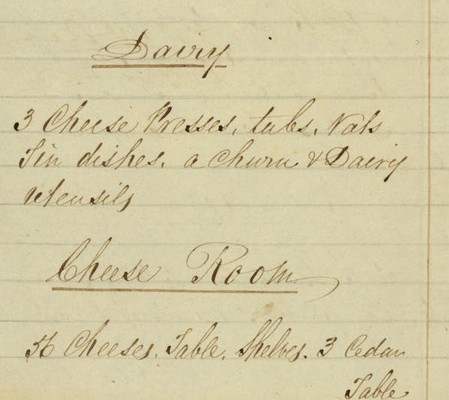 Dairy
3 Cheese Presses, tubs, Vats
Tin dishes, a Churn & Dairy
utensils
Cheese Room
Cheeses, Table, Shelves, 3 Cedar
Table